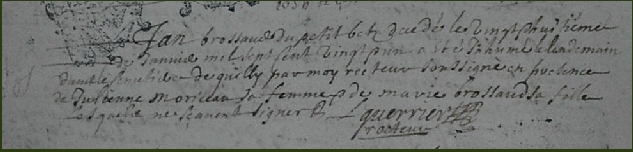 Jan brossaud du petit betz décédé le vingt huitieme
de Janvier mil sept cent vingt un a esté Inhumé le lendemain
dans le cimetiere de quilly par moy recteur soussigné en presence
de Julienne moriceau sa femme & de marie brossaud sa fille
lesquelles ne scavent signer
L guerrier
recteur